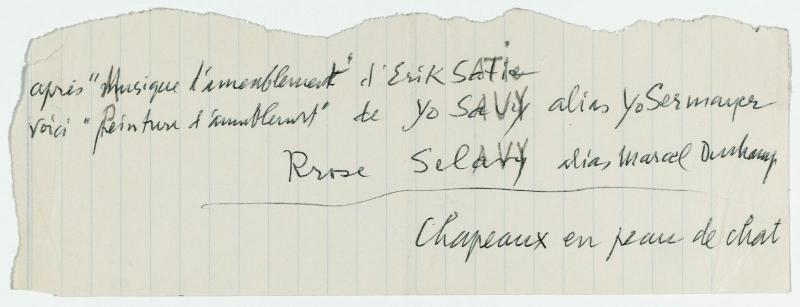 après "Musique d'ameublement" d'Erik SATie
voici "Peinture d'ameublement" de Yo SAVY alias YoSermayer
Rrose SelAVY alias Marcel Duchamp
Chapeaux en peau de chat